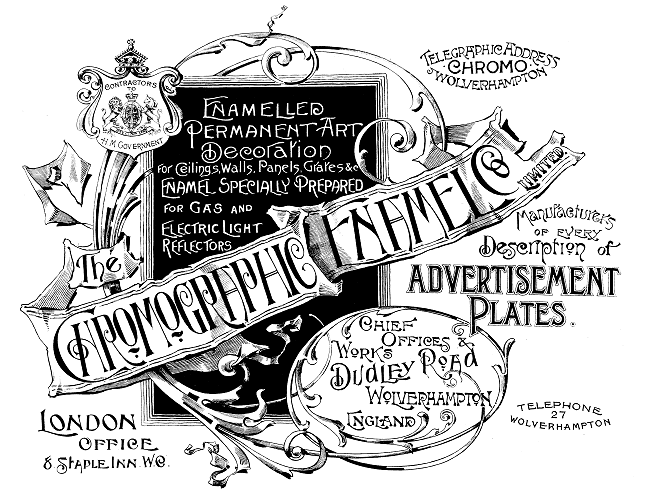 CONTRACTORS
TO
H.M. GOVERNMENT
ENAMELLED
PERMANENT ART
DECORATION
FOR CEILINGS, WALLS, PANELS, GRATES & C
ENAMEL SPECIALLY PREPARED
FOR GAS AND
ELECTRIC LIGHT
REFLECTORS
TELEGRAPHIC ADDRESS
"CHROMO"
WOLVERHAMPTON
The
CHROMOGRAPHIC ENAMEL Co
LIMITED.
Manufacturers
OF EVERY
Description of
ADVERTISEMENT
PLATES.
CHIEF
OFFICES &
WORKS
DUDLEY ROAD
WOLVERHAMPTON
ENGLAND
LONDON
OFFICE
8. STAPLE INN. W.C.
TELEPHONE
27
WOLVERHAMPTON